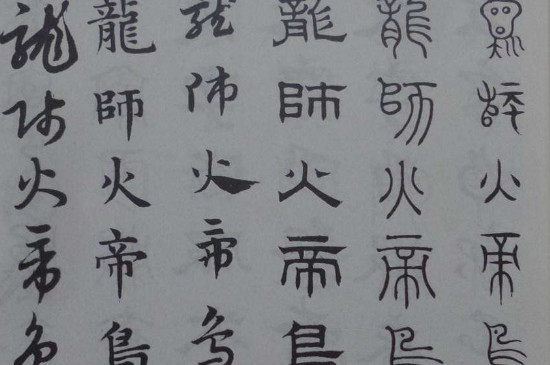 龍師火帝鳥
龍師火帝鳥
龍師火帝鳥
龍師火帝鳥
龍師火帝鳥
龍師火帝鳥